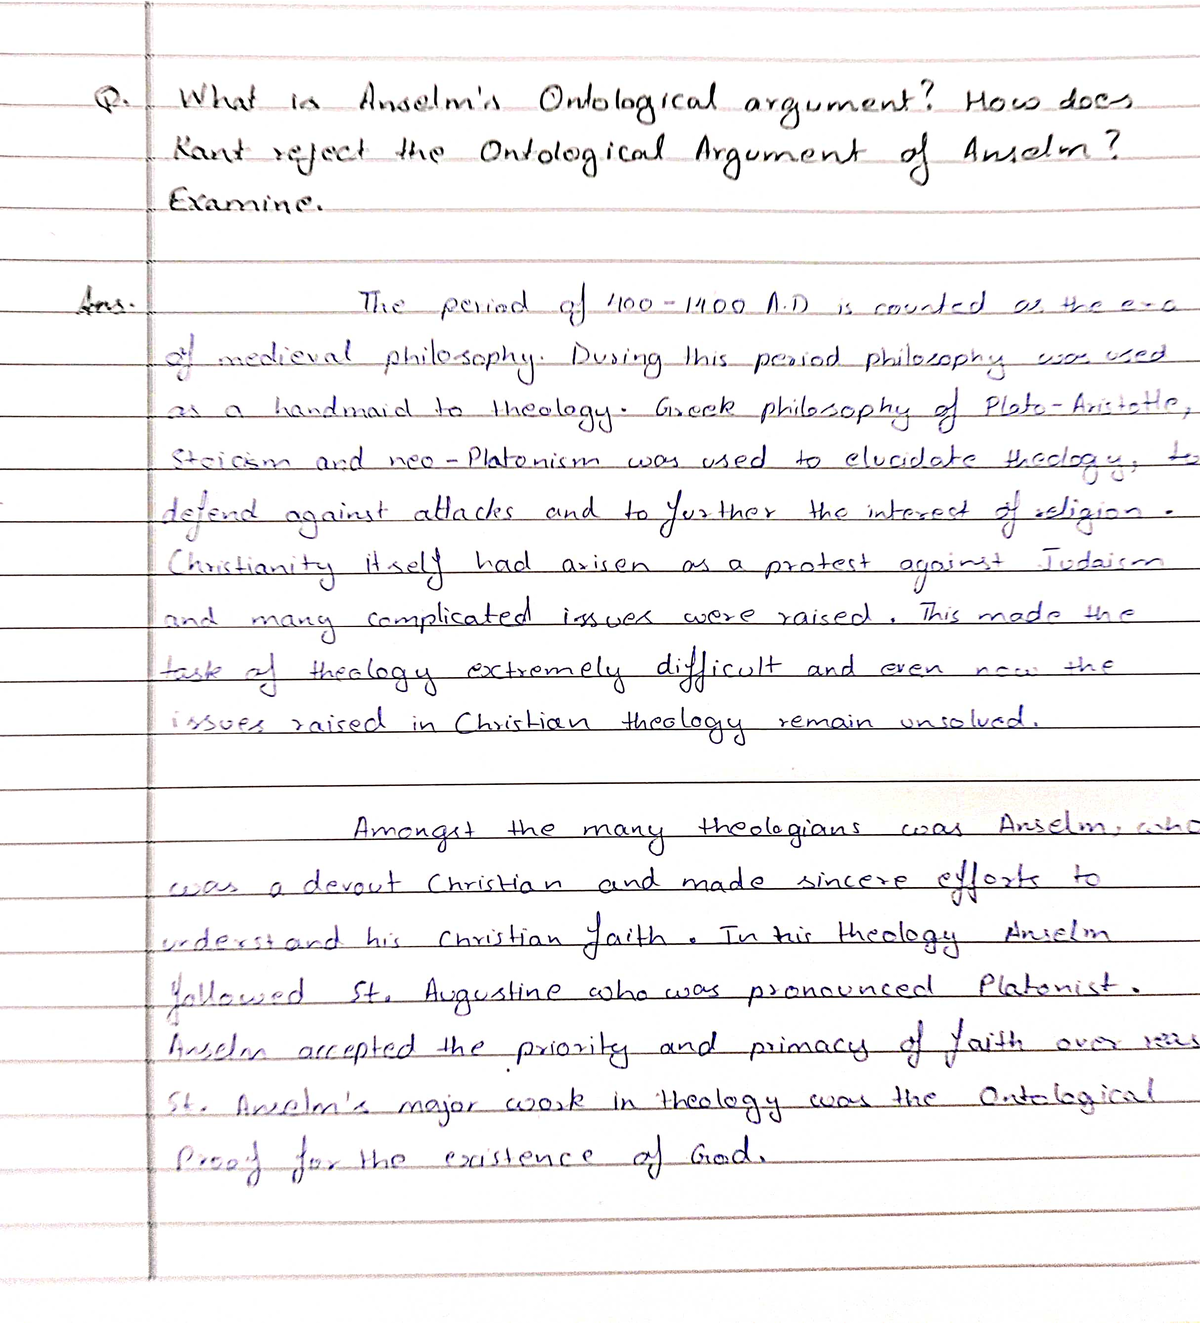 Q. What is Anselm's Ontological argument? How does
Kant reject the Ontological Argument of Anselm?
Examine.
Ans. The period of 400-1400 A.D is counted as the era
of medieval philosophy. During this period philosophy was used
as a handmaid to theology. Greek philosophy of Plato-Aristotle,
Stoicism and neo-Platonism was used to elucidate theology, to
defend against attacks and to further the interest of religion.
Christianity itself had arisen as a protest against Judaism
and many complicated issues were raised. This made the
task of theology extremely difficult and even now the
issues raised in Christian theology remain unsolved.
Amongst the many theologians was Anselm, who
was a devout Christian and made sincere efforts to
understand his Christian faith. In his theology Anselm
followed St. Augustine who was pronounced Platonist.
Anselm accepted the priority and primacy of faith over
St. Anselm's major work in theology was the Ontological
Proof for the existence of God.